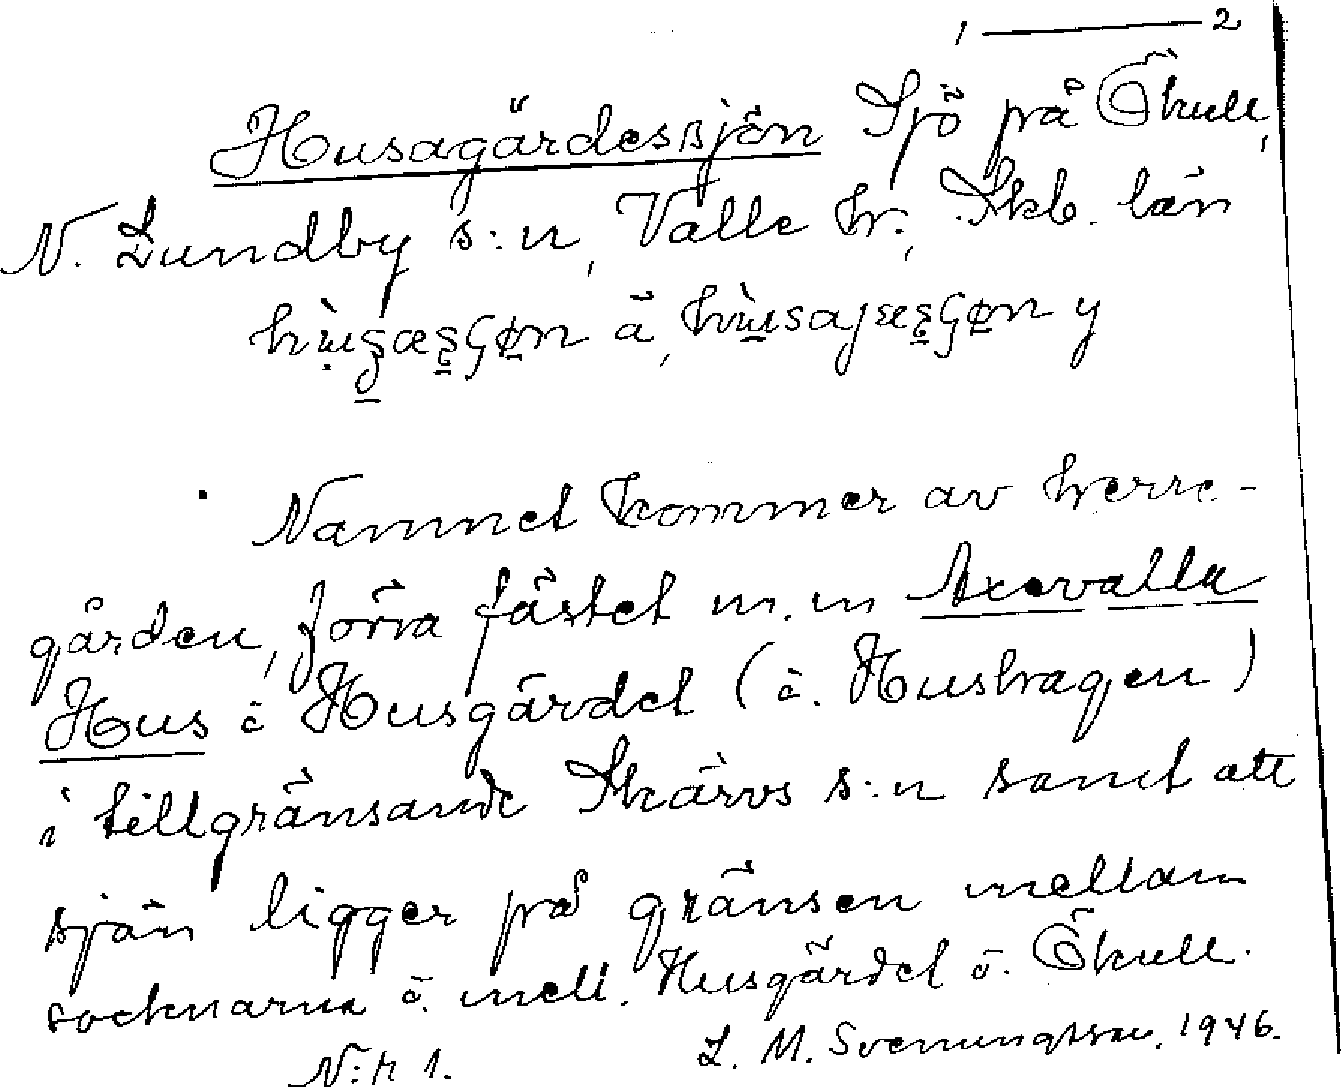 1 — 2
Husagärdessjön Sjö på Ökull,
N. Lundby s:n, Valle hr., Skb. län
Namnet kommer av herre-
gården, förra fästet m.m Axevalla
Hus o Husgärdet (o. Hushagen)
i tillgränsande Skärvs s:n samt att
sjön ligger på gränsen mellan
socknarna o. mell. Husgärdet o. Ökull.
N:r 1. L. M. Svenungsson, 1946.